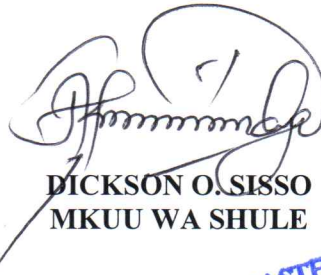 DICKSON O. SISSO
MKUU WA SHULE